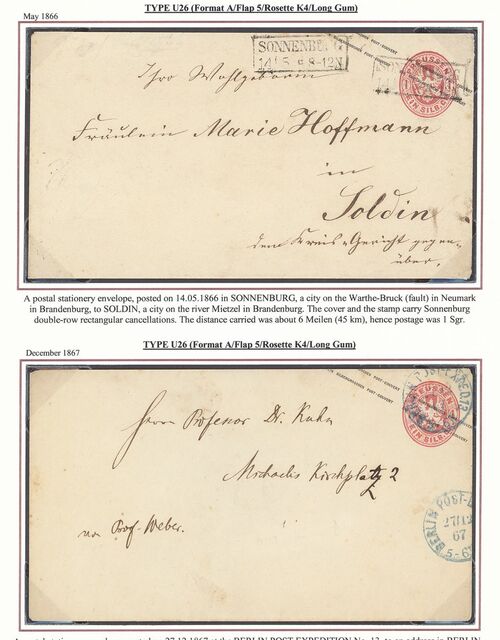 May 1866
TYPE U26 (Format A/Flap 5/Rosette K4/Long Gum)
SONNENBURG
14 5 8-12N
PREUSSEN
EIN SILB.
Ihro Wohlgeboren
Fräulein Marie Hoffmann
in
Soldin
dem Kreis-Gericht gegen-
über.
A postal stationery envelope, posted on 14.05.1866 in SONNENBURG, a city on the Warthe-Bruck (fault) in Neumark
in Brandenburg, to SOLDIN, a city on the river Mietzel in Brandenburg. The cover and the stamp carry Sonnenburg
double-row rectangular cancellations. The distance carried was about 6 Meilen (45 km), hence postage was 1 Sgr.
December 1867
TYPE U26 (Format A/Flap 5/Rosette K4/Long Gum)
POST-EXPED 12
PREUSSEN
EIN SILB.
Herrn Professor Dr. Kuhn
Michaelis Kirchplatz 2
von Prof. Weber.
BERLIN POST-E
27 12
67
5-6